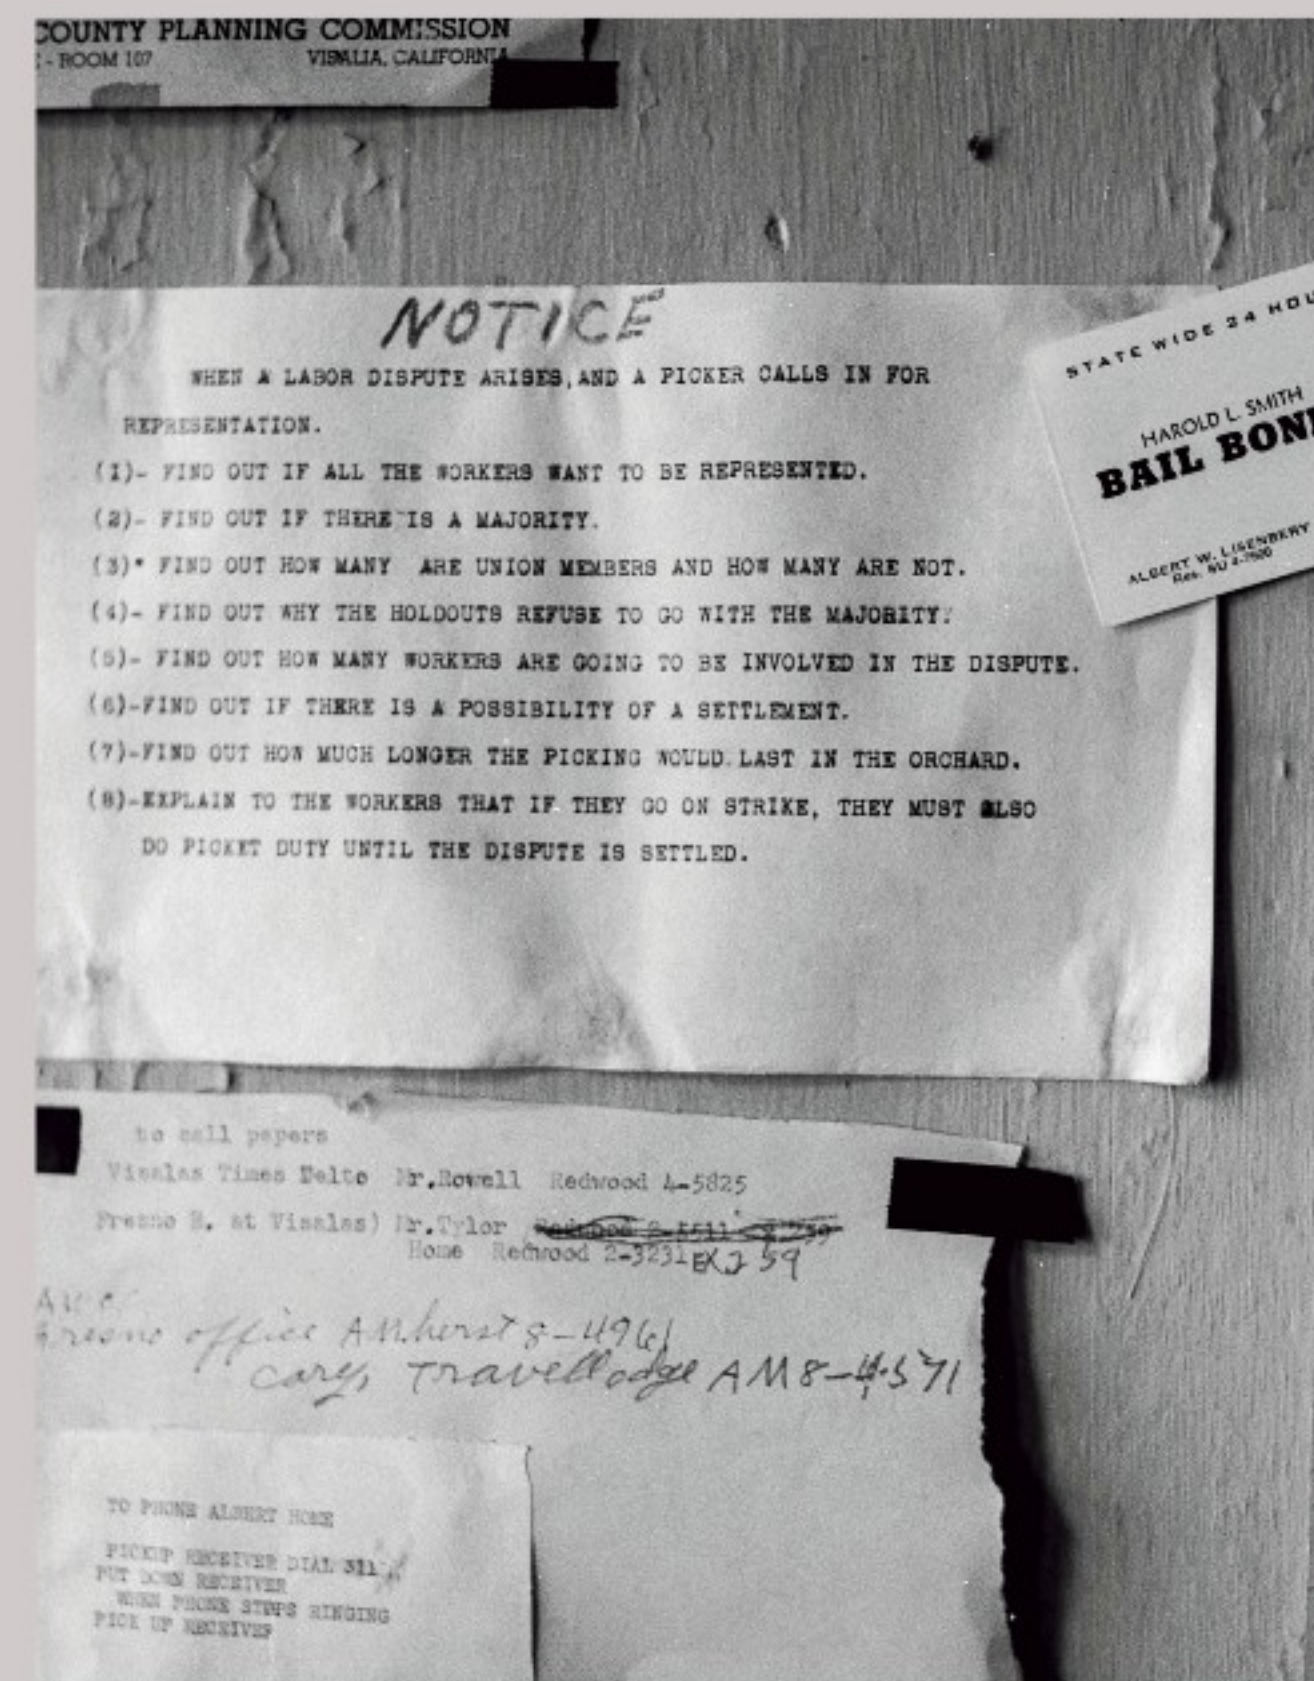 COUNTY PLANNING COMMISSION
- ROOM 107 VISALIA, CALIFORNIA
NOTICE
WHEN A LABOR DISPUTE ARISES, AND A PICKER CALLS IN FOR
REPRESENTATION.
(1)- FIND OUT IF ALL THE WORKERS WANT TO BE REPRESENTED.
(2)- FIND OUT IF THERE IS A MAJORITY.
(3)- FIND OUT HOW MANY ARE UNION MEMBERS AND HOW MANY ARE NOT.
(4)- FIND OUT WHY THE HOLDOUTS REFUSE TO GO WITH THE MAJORITY.
(5)- FIND OUT HOW MANY WORKERS ARE GOING TO BE INVOLVED IN THE DISPUTE.
(6)-FIND OUT IF THERE IS A POSSIBILITY OF A SETTLEMENT.
(7)-FIND OUT HOW MUCH LONGER THE PICKING WOULD LAST IN THE ORCHARD.
(8)-EXPLAIN TO THE WORKERS THAT IF THEY GO ON STRIKE, THEY MUST ALSO
DO PICKET DUTY UNTIL THE DISPUTE IS SETTLED.
STATE WIDE 24 HOU
HAROLD L. SMITH
BAIL BON
ALBERT W. LISENBERY
Res. SU 4-7500
to call papers
Visalas Times Delto Mr.Rowell Redwood 4-5825
Fresno B. at Visalas) Mr.Tylor
Home Redwood 2-3231 EX 259
Fresno office AMherst 8-4961
Cary, Travellodge AM8-4571
TO PHONE ALBERT HOME
PICKUP RECEIVER DIAL 311
PUT DOWN RECEIVER
WHEN PHONE STOPS RINGING
PICK UP RECEIVER